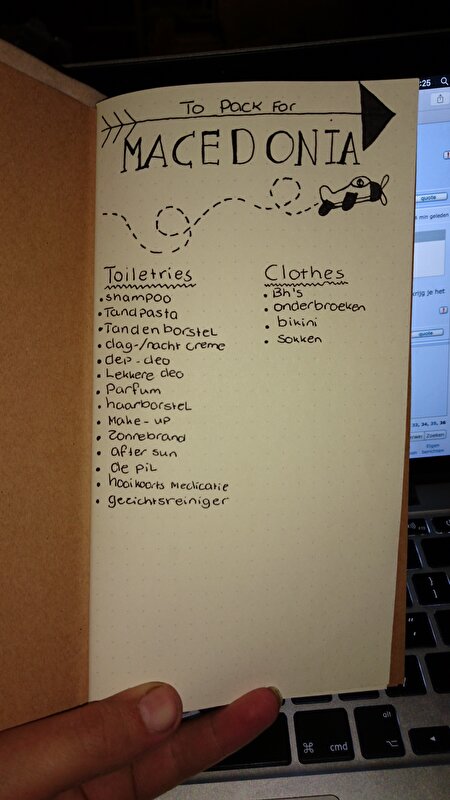 To Pack For
MACEDONIA
Toiletries
• shampoo
• Tandpasta
• Tandenborstel
• dag-/nacht creme
• dep-deo
• Lekkere deo
• Parfum
• haarborstel
• Make-up
• Zonnebrand
• after sun
• de pil
• hooikoorts medicatie
• gezichtsreiniger
Clothes
• Bh's
• onderbroeken
• bikini
• sokken
:25
quote
min geleden
krijg je het
quote
32, 34, 35, 36
Zoeken
alt
cmd